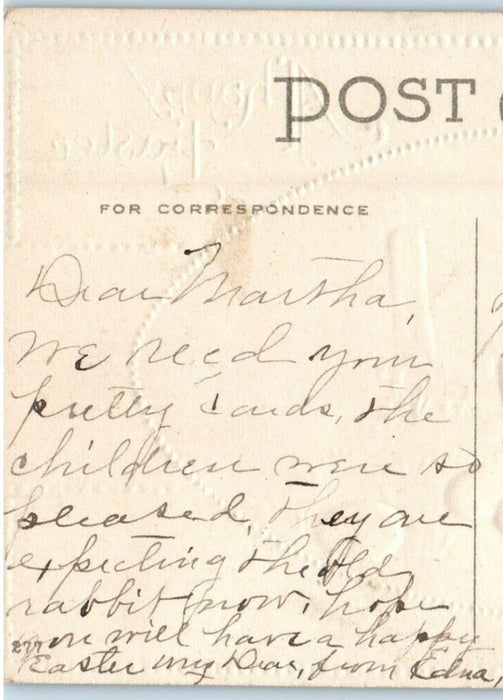 POST
FOR CORRESPONDENCE
Dear Martha,
We recd your
pretty cards, the
children were so
pleased, they are
expecting the old
rabbit now, hope
you will have a happy
277
Easter my Dear, from Edna,